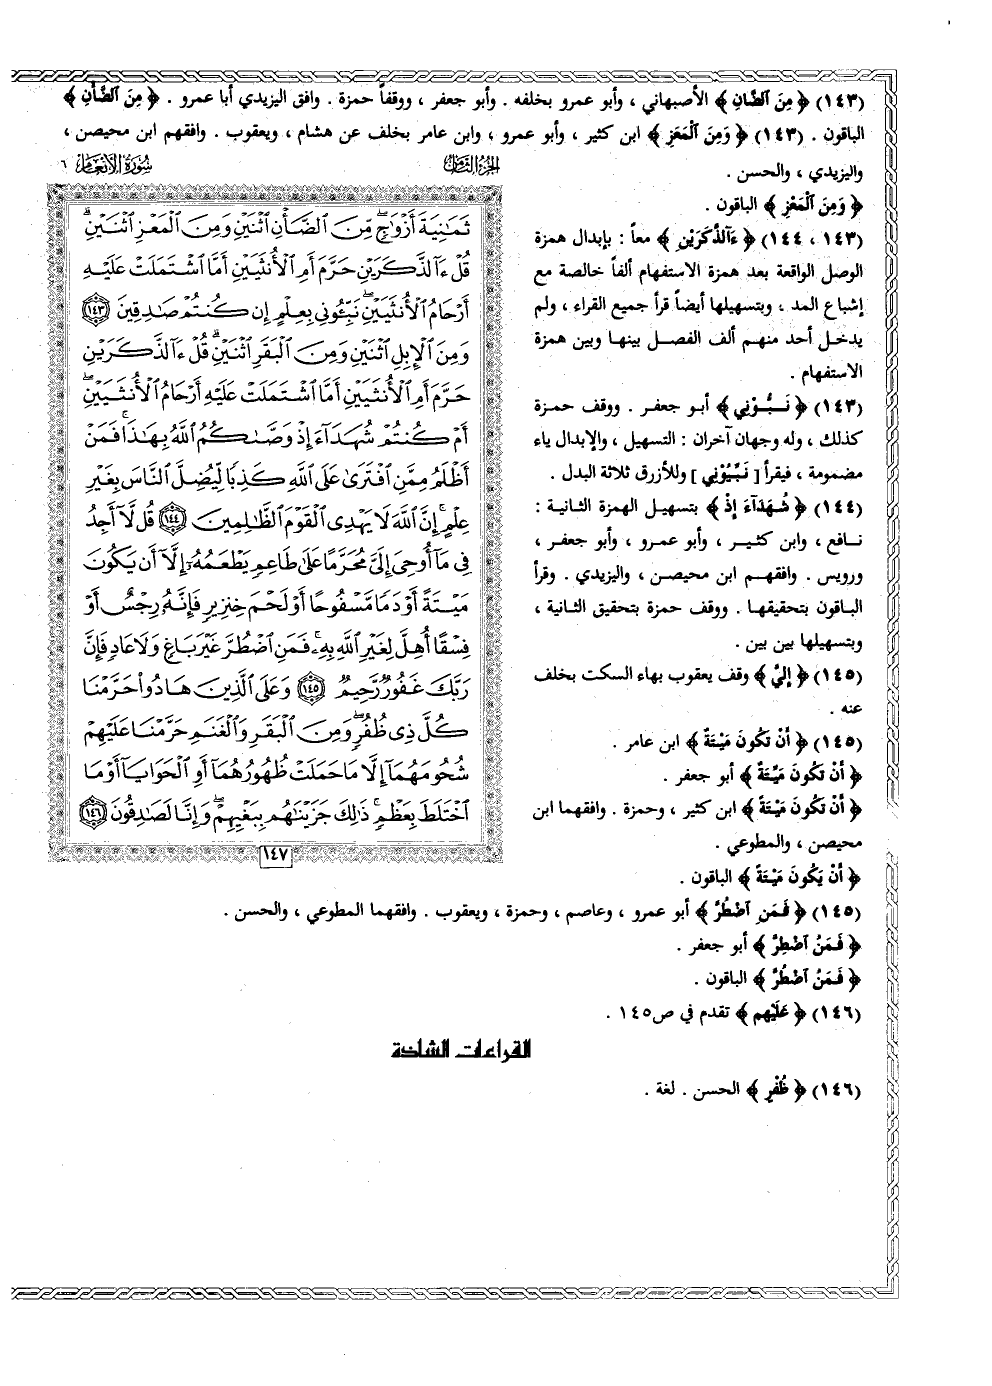 (١٤٣) ﴿ مِنَ ٱلضَّانِ ﴾ الأصبهاني ، وأبو عمرو بخلفه . وأبو جعفر ، ووقفاً حمزة . وافق اليزيدي أبا عمرو . ﴿ مِنَ ٱلضَّأْنِ ﴾
الباقون . (١٤٣) ﴿ وَمِنَ ٱلْمَعَزِ ﴾ ابن كثير ، وأبو عمرو ، وابن عامر بخلف عن هشام ، ويعقوب . وافقهم ابن محيصن ،
واليزيدي ، والحسن .
﴿ وَمِنَ ٱلْمَعْزِ ﴾ الباقون .
(١٤٣ ، ١٤٤) ﴿ ءَآلذَّكَرَيْنِ ﴾ معاً : بإبدال همزة
الوصل الواقعة بعد همزة الاستفهام ألفاً خالصة مع
إشباع المد ، وبتسهيلها أيضاً قرأ جميع القراء ، ولم
يدخل أحد منهم ألف الفصل بينها وبين همزة
الاستفهام .
(١٤٣) ﴿ نَبُّوْنِي ﴾ أبو جعفر . ووقف حمزة
كذلك ، وله وجهان آخران : التسهيل ، والإبدال ياء
مضمومة ، فيقرأ [ نَبِّيُوْنِي ] وللأزرق ثلاثة البدل .
(١٤٤) ﴿ شُهَدَآءَ إِذْ ﴾ بتسهيل الهمزة الثانية :
نافع ، وابن كثير ، وأبو عمرو ، وأبو جعفر ،
ورويس . وافقهم ابن محيصن ، واليزيدي . وقرأ
الباقون بتحقيقها . ووقف حمزة بتحقيق الثانية ،
وبتسهيلها بين بين .
(١٤٥) ﴿ إِلَيَّ ﴾ وقف يعقوب بهاء السكت بخلف
عنه .
(١٤٥) ﴿ أَنْ تَكُونَ مَيْتَةٌ ﴾ ابن عامر .
﴿ أَنْ تَكُونَ مَيِّتَةٌ ﴾ أبو جعفر .
﴿ أَنْ تَكُونَ مَيْتَةً ﴾ ابن كثير ، وحمزة . وافقهما ابن
محيصن ، والمطوعي .
﴿ أَنْ يَكُونَ مَيْتَةً ﴾ الباقون .
(١٤٥) ﴿ فَمَنِ ٱضْطُرَّ ﴾ أبو عمرو ، وعاصم ، وحمزة ، ويعقوب . وافقهما المطوعي ، والحسن .
﴿ فَمَنُ ٱضْطِرَّ ﴾ أبو جعفر .
﴿ فَمَنُ ٱضْطُرَّ ﴾ الباقون .
(١٤٦) ﴿ عَلَيْهِم ﴾ تقدم في ص١٤٥ .
القراءات الشاذة
(١٤٦) ﴿ ظُفْرٍ ﴾ الحسن . لغة .
الجزء الثامن
سورة الأنعام ٦
ثَمَٰنِيَةَ أَزْوَٰجٍۖ مِّنَ ٱلضَّأْنِ ٱثْنَيْنِ وَمِنَ ٱلْمَعْزِ ٱثْنَيْنِۗ
قُلْ ءَآلذَّكَرَيْنِ حَرَّمَ أَمِ ٱلْأُنثَيَيْنِ أَمَّا ٱشْتَمَلَتْ عَلَيْهِ
أَرْحَامُ ٱلْأُنثَيَيْنِۖ نَبِّـُٔونِى بِعِلْمٍ إِن كُنتُمْ صَٰدِقِينَ ١٤٣
وَمِنَ ٱلْإِبِلِ ٱثْنَيْنِ وَمِنَ ٱلْبَقَرِ ٱثْنَيْنِۗ قُلْ ءَآلذَّكَرَيْنِ
حَرَّمَ أَمِ ٱلْأُنثَيَيْنِ أَمَّا ٱشْتَمَلَتْ عَلَيْهِ أَرْحَامُ ٱلْأُنثَيَيْنِۖ
أَمْ كُنتُمْ شُهَدَآءَ إِذْ وَصَّىٰكُمُ ٱللَّهُ بِهَٰذَاۚ فَمَنْ
أَظْلَمُ مِمَّنِ ٱفْتَرَىٰ عَلَى ٱللَّهِ كَذِبًا لِّيُضِلَّ ٱلنَّاسَ بِغَيْرِ
عِلْمٍۗ إِنَّ ٱللَّهَ لَا يَهْدِى ٱلْقَوْمَ ٱلظَّٰلِمِينَ ١٤٤ قُل لَّآ أَجِدُ
فِى مَآ أُوحِىَ إِلَىَّ مُحَرَّمًا عَلَىٰ طَاعِمٍ يَطْعَمُهُۥٓ إِلَّآ أَن يَكُونَ
مَيْتَةً أَوْ دَمًا مَّسْفُوحًا أَوْ لَحْمَ خِنزِيرٍ فَإِنَّهُۥ رِجْسٌ أَوْ
فِسْقًا أُهِلَّ لِغَيْرِ ٱللَّهِ بِهِۦۚ فَمَنِ ٱضْطُرَّ غَيْرَ بَاغٍ وَلَا عَادٍ فَإِنَّ
رَبَّكَ غَفُورٌ رَّحِيمٌ ١٤٥ وَعَلَى ٱلَّذِينَ هَادُوا۟ حَرَّمْنَا
كُلَّ ذِى ظُفُرٍۖ وَمِنَ ٱلْبَقَرِ وَٱلْغَنَمِ حَرَّمْنَا عَلَيْهِمْ
شُحُومَهُمَآ إِلَّا مَا حَمَلَتْ ظُهُورُهُمَآ أَوِ ٱلْحَوَايَآ أَوْ مَا
ٱخْتَلَطَ بِعَظْمٍۚ ذَٰلِكَ جَزَيْنَٰهُم بِبَغْيِهِمْۖ وَإِنَّا لَصَٰدِقُونَ ١٤٦
١٤٧